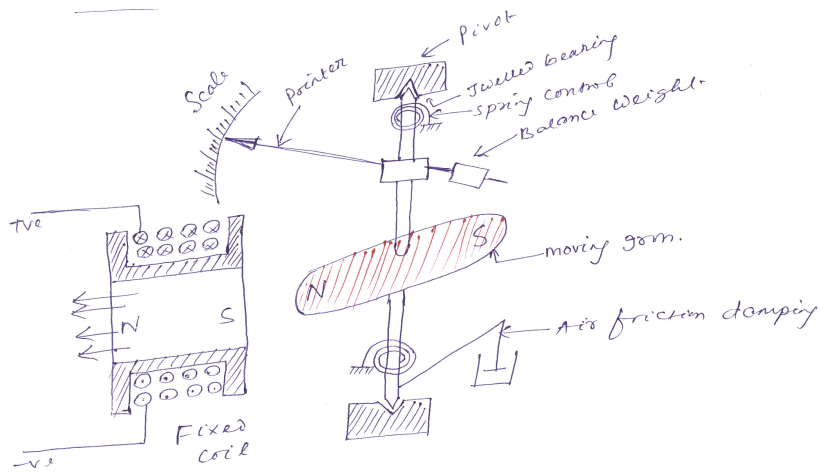 Pivot
Jwelled bearing
Spring control
Balance weight.
Scale
Pointer
+ve
S
moving iron.
N
N S
Air friction damping
Fixed
coil
-ve